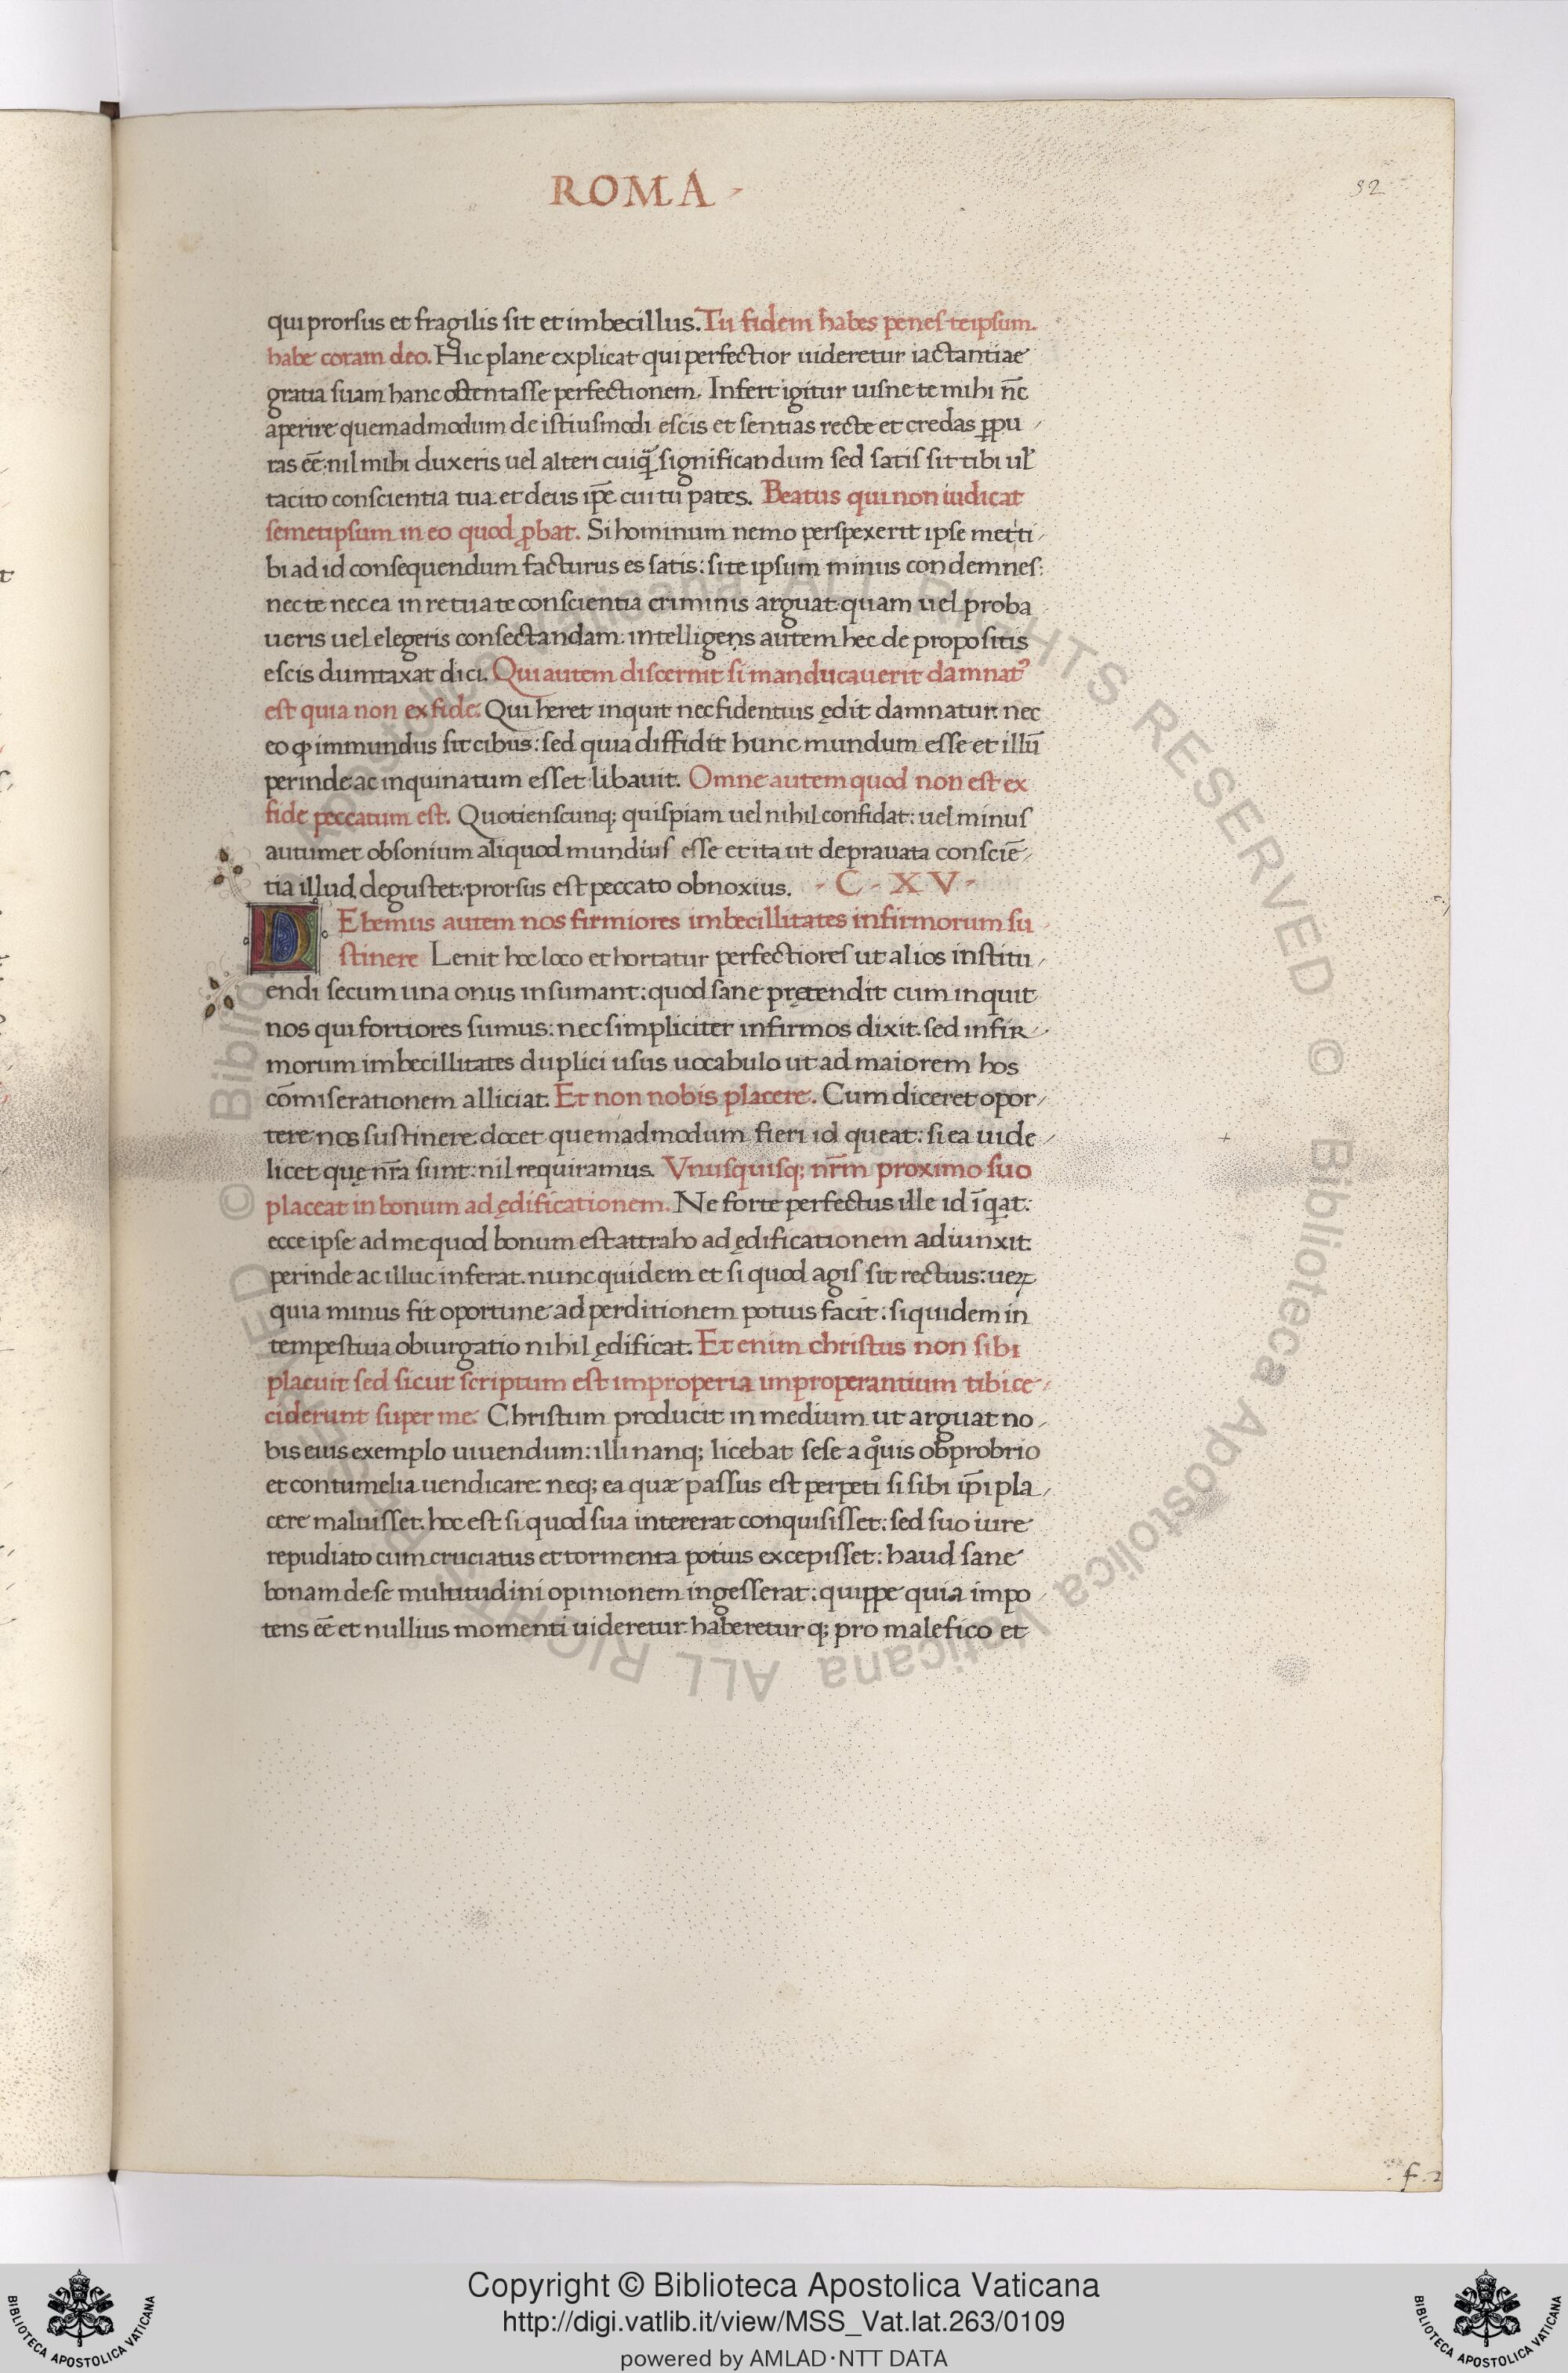 ROMA
52
qui prorsus et fragilis sit et imbecillus. Tu fidem habes penes teipsum.
habe coram deo. Hic plane explicat qui perfectior uideretur iactantiae
gratia suam hanc ostentasse perfectionem. Infert igitur uisne te mihi nc̄
aperire quemadmodum de istiusmodi escis et sentias recte et credas ꝑpu
ras eē: nil mihi duxeris uel alteri cuiq̄ significandum sed satis sit tibi ul̄
tacito conscientia tua et deus ip̄e cui tu pates. Beatus qui non iudicat
semetipsum in eo quod ꝓbat. Si hominum nemo perspexerit ipse met ti
bi ad id consequendum facturus es satis: si te ipsum minus condemnes:
nec te nec ea in re tua te conscientia criminis arguat: quam uel proba
ueris uel elegeris consectandam: intelligens autem hec de propositis
escis dumtaxat dici. Qui autem discernit si manducauerit damnatꝰ
est quia non ex fide. Qui heret inquit nec fidentius ędit damnatur: nec
eo ꝙ immundus sit cibus: sed quia diffidit hunc mundum esse et illū
perinde ac inquinatum esset libauit. Omne autem quod non est ex
fide peccatum est. Quotienscunq; quispiam uel nihil confidat: uel minus
autumet obsonium aliquod mundius esse et ita ut deprauata consciē
tia illud degustet: prorsus est peccato obnoxius. - C - X V -
DEbemus autem nos firmiores imbecillitates infirmorum su
stinere Lenit hoc loco et hortatur perfectiores ut alios institu
endi secum una onus insumant: quod sane prętendit cum inquit
nos qui fortiores sumus: nec simpliciter infirmos dixit. sed infir
morum imbecillitates duplici usus uocabulo ut ad maiorem hos
cōmiserationem alliciat. Et non nobis placere. Cum diceret opor
tere nos sustinere. docet quemadmodum fieri id queat: si ea uide
licet quę nr̄a sunt: nil requiramus. Vnusquisq; nr̄m proximo suo
placeat in bonum ad ędificationem. Ne forte perfectus ille id īqat:
ecce ipse ad me quod bonum est attraho ad ędificationem adiunxit.
perinde ac illuc inferat. nunc quidem et si quod agis sit rectius: ueꝝ
quia minus fit oportune ad perditionem potius facit: siquidem in
tempestiua obiurgatio nihil ędificat. Et enim christus non sibi
placuit sed sicut scriptum est improperia improperantium tibi ce
ciderunt super me. Christum producit in medium ut arguat no
bis eius exemplo uiuendum: illi nanq; licebat sese a qͦuis obprobrio
et contumelia uendicare: neq; ea quæ passus est perpeti si sibi ip̄i pla
cere maluisset. hoc est si quod sua intererat conquisisset: sed suo iure
repudiato cum cruciatus et tormenta potius excepisset: haud sane
bonam de se multitudini opinionem ingesserat: quippe quia impo
tens eē et nullius momenti uideretur haberetur q; pro malefico et
f. 2
© Biblioteca Apostolica Vaticana ALL RIGHTS RESERVED © Biblioteca Apostolica Vaticana ALL RIGHTS RESERVED
Copyright © Biblioteca Apostolica Vaticana
http://digi.vatlib.it/view/MSS_Vat.lat.263/0109
powered by AMLAD·NTT DATA
BIBLIOTECA APOSTOLICA VATICANA
BIBLIOTECA APOSTOLICA VATICANA